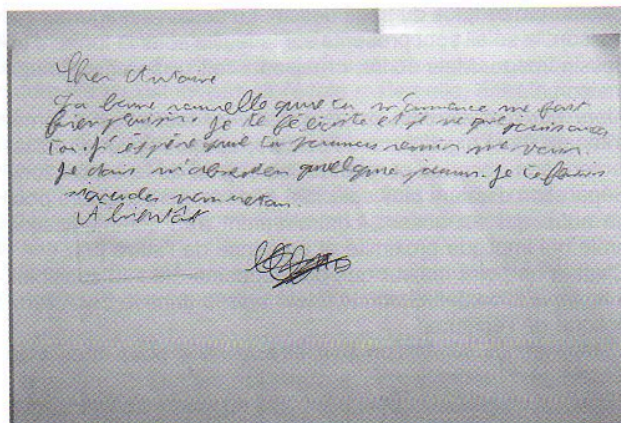 Cher Antoine
La bonne nouvelle que tu m'annonce me fait
bien plaisir. Je te félicite et je me réjouis avec
toi. J'éspère que tu pourras venir me voir.
Je dois m'absenter quelque jours. Je te ferais
à mon retour.
A bientôt